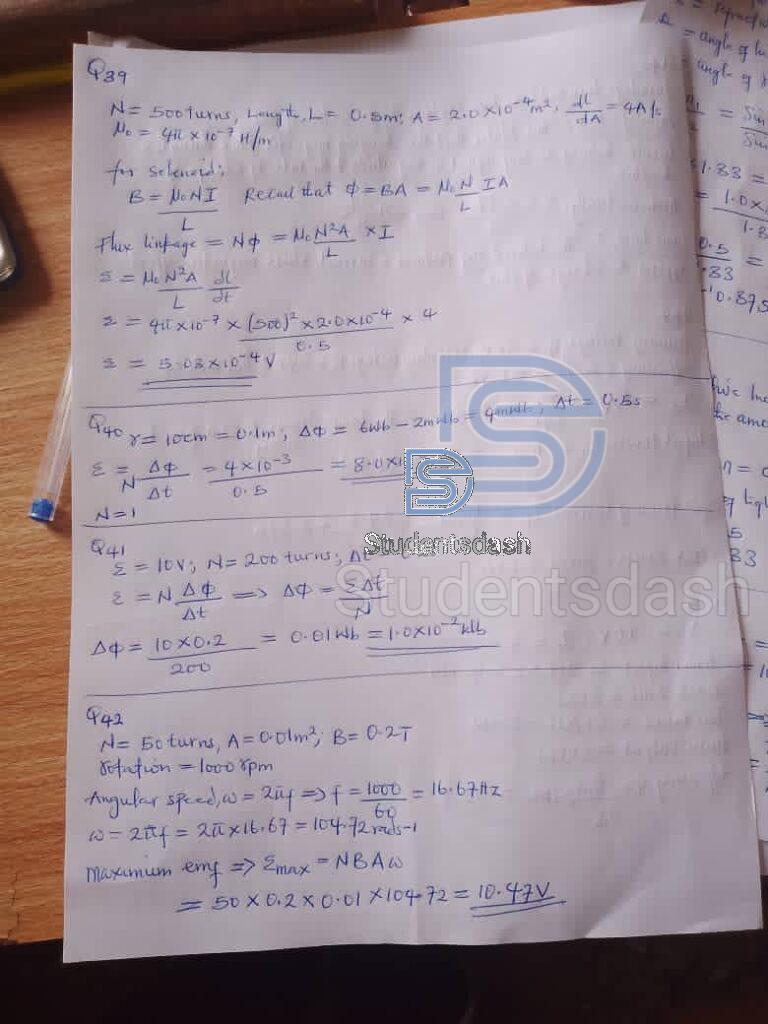 Q39
N = 500 turns, Length, L = 0.5m; A = 2.0×10⁻⁴m²; dI/dA = 4A/s
μ₀ = 4π × 10⁻⁷ H/m
for solenoid;
B = μ₀NI/L Recall that Φ = BA = μ₀ N/L IA
Flux linkage = NΦ = μ₀ N²A/L × I
Σ = μ₀ N²A/L dI/dt
Σ = 4π × 10⁻⁷ × (500)² × 2.0×10⁻⁴/0.5 × 4
Σ = 5.03×10⁻⁴ V
Q40 r = 10cm = 0.1m; ΔΦ = 6Wb - 2mWb = 4mWb; Δt = 0.5s
Σ = N ΔΦ/Δt = 4×10⁻³/0.5 = 8.0×10
N = 1
Q41
Σ = 10V; N = 200 turns; Δt
Σ = N ΔΦ/Δt => ΔΦ = ΣΔt/N
ΔΦ = 10×0.2/200 = 0.01Wb = 1.0×10⁻² Wb
Q42
N = 50 turns, A = 0.01m²; B = 0.2T
rotation = 1000 rpm
Angular speed, ω = 2πf => f = 1000/60 = 16.67Hz
ω = 2πf = 2π×16.67 = 104.72 rads-1
Maximum emf => Σmax = NBAω
= 50 × 0.2 × 0.01 × 104.72 = 10.47V
Studentsdash
Studentsdash
= angle of
angle of
= Sin
1.33 =
= 1.0×
0.5